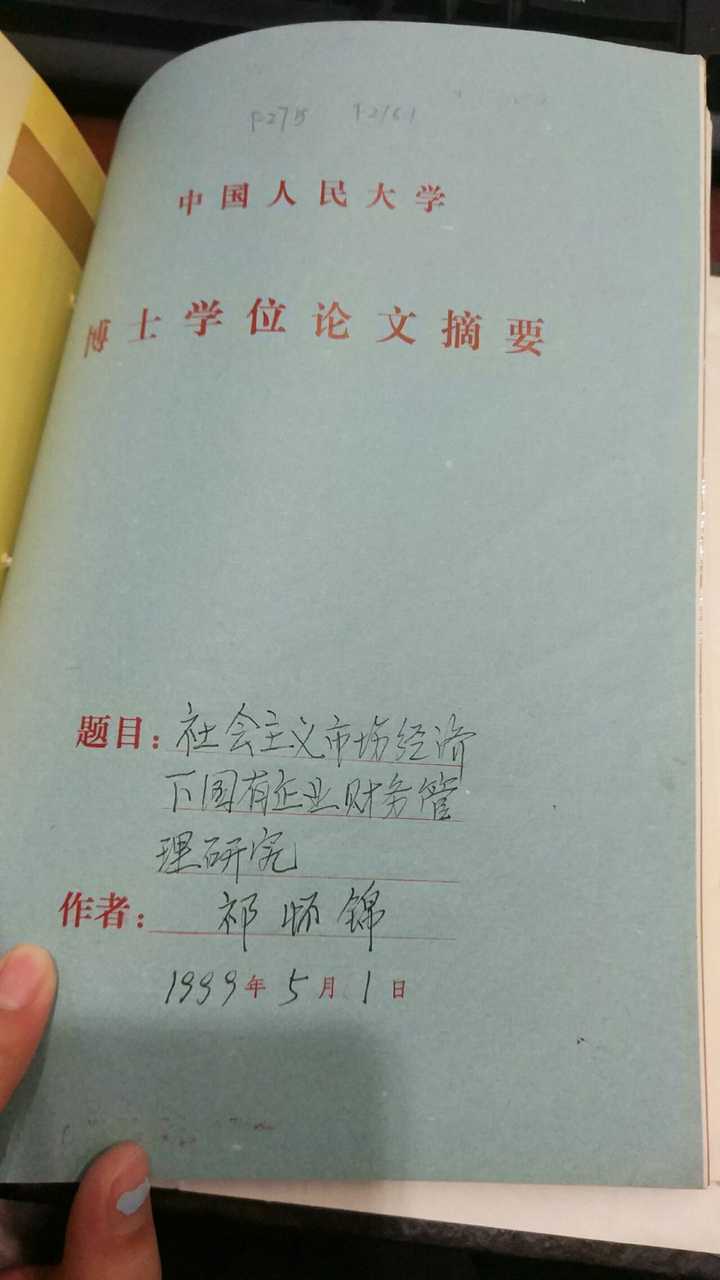 中国人民大学
博士学位论文摘要
题目：社会主义市场经济
下国有企业财务管
理研究
作者：祁怀锦
1999年5月1日